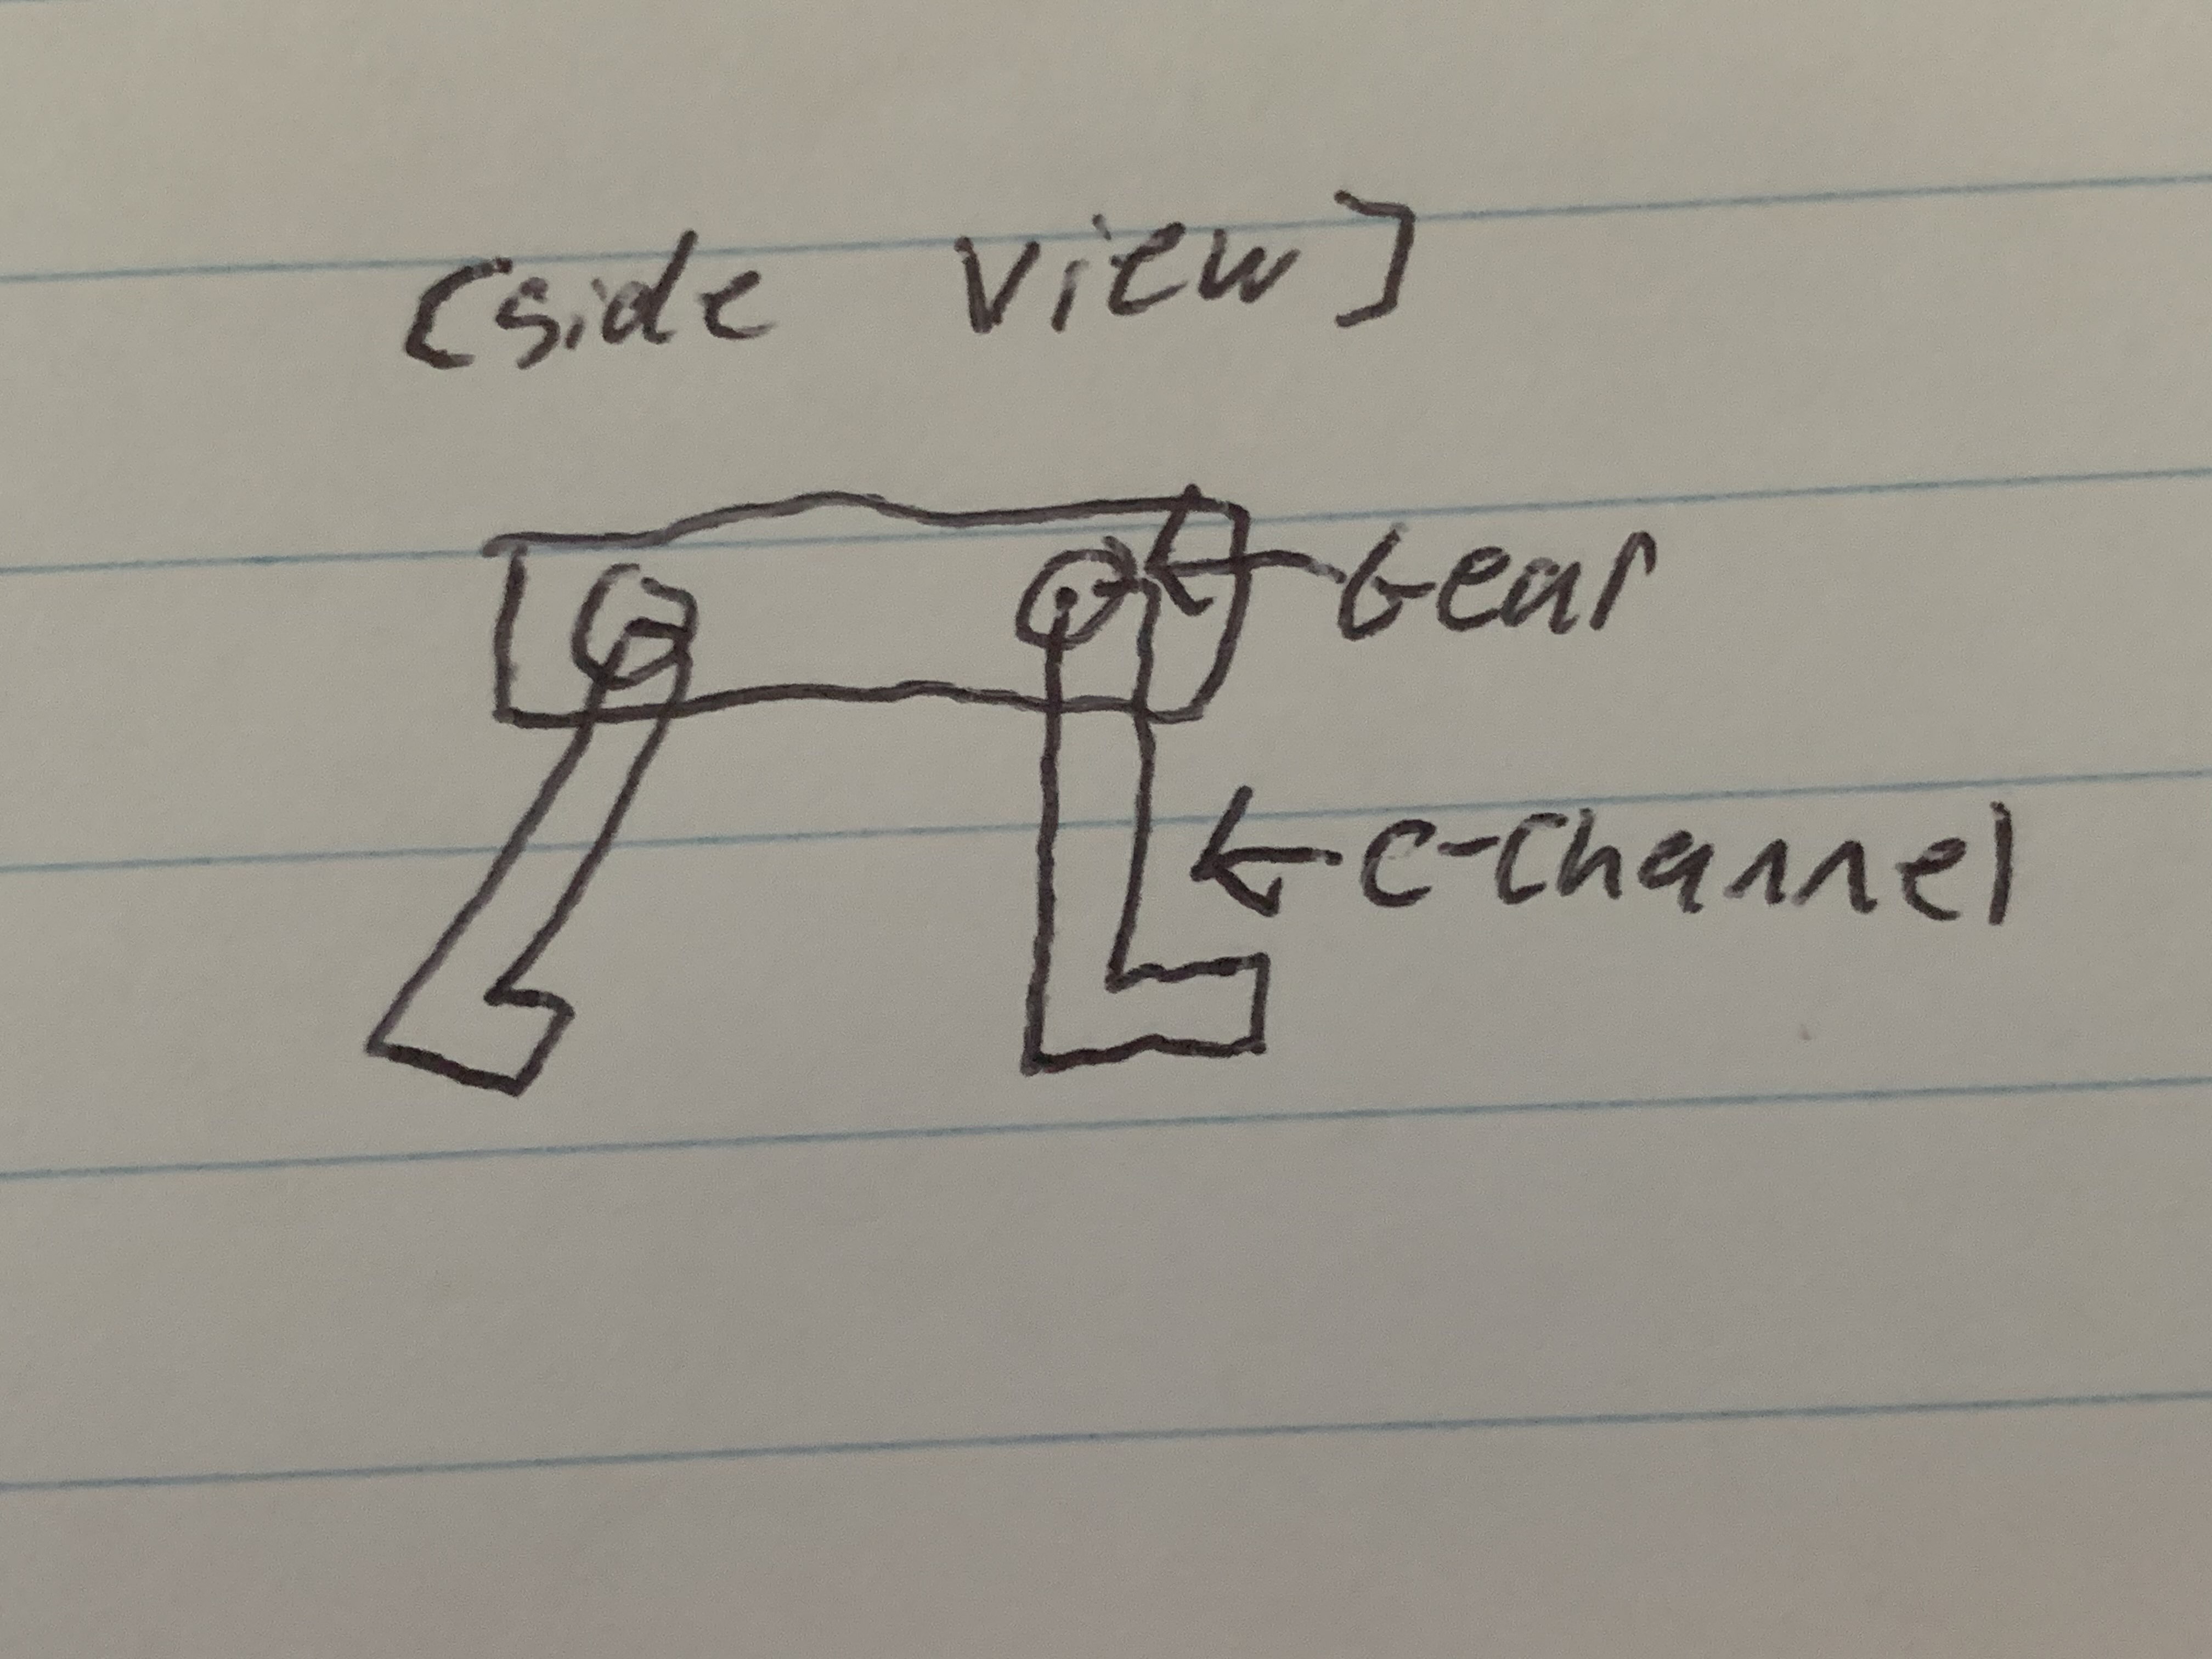 [side view]
Gear
C-Channel